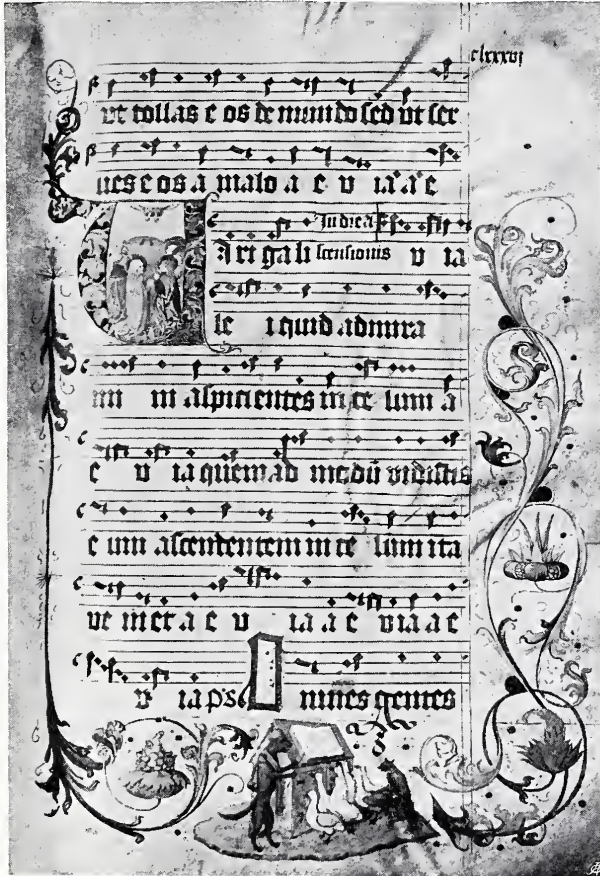 clxxxvj
vt tollas e os de mundo sed vt ser
ues e os a malo a e v ia a e
In die a
A ri ga li scensionis v ia
le i quid admira
mi ni aspicientes in ce lum a
e v ia quem ad modū vidistis
e um ascendentem in ce lum ita
ve niet a e v ia a e v ia a e
v ia ps O mnes gentes